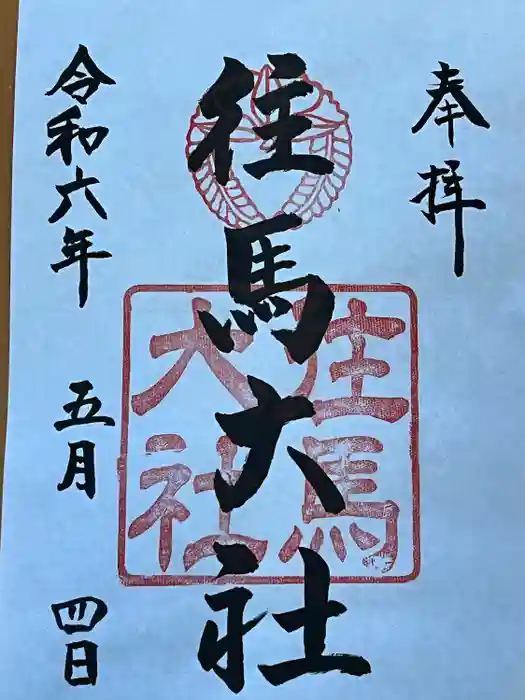 奉拝
往馬大社
往馬
大社
令和六年 五月 四日